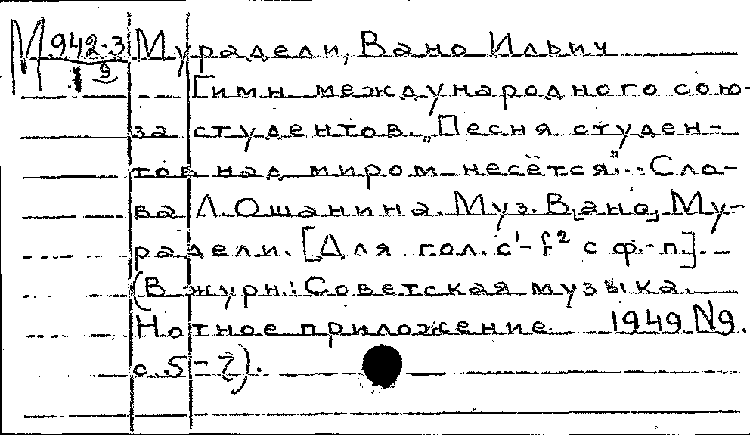 М 942-3 Мурадели, Вано Ильич
9
Гимн международного сою-
за студентов. „Песня студен-
тов над миром несётся"... Сло-
ва Л. Ошанина. Муз. В[ано] Му-
радели. [Для гол. c¹-f² с ф.-п.].
(В журн.: Советская музыка.
Нотное приложение 1949 N9.
с. 5-7).